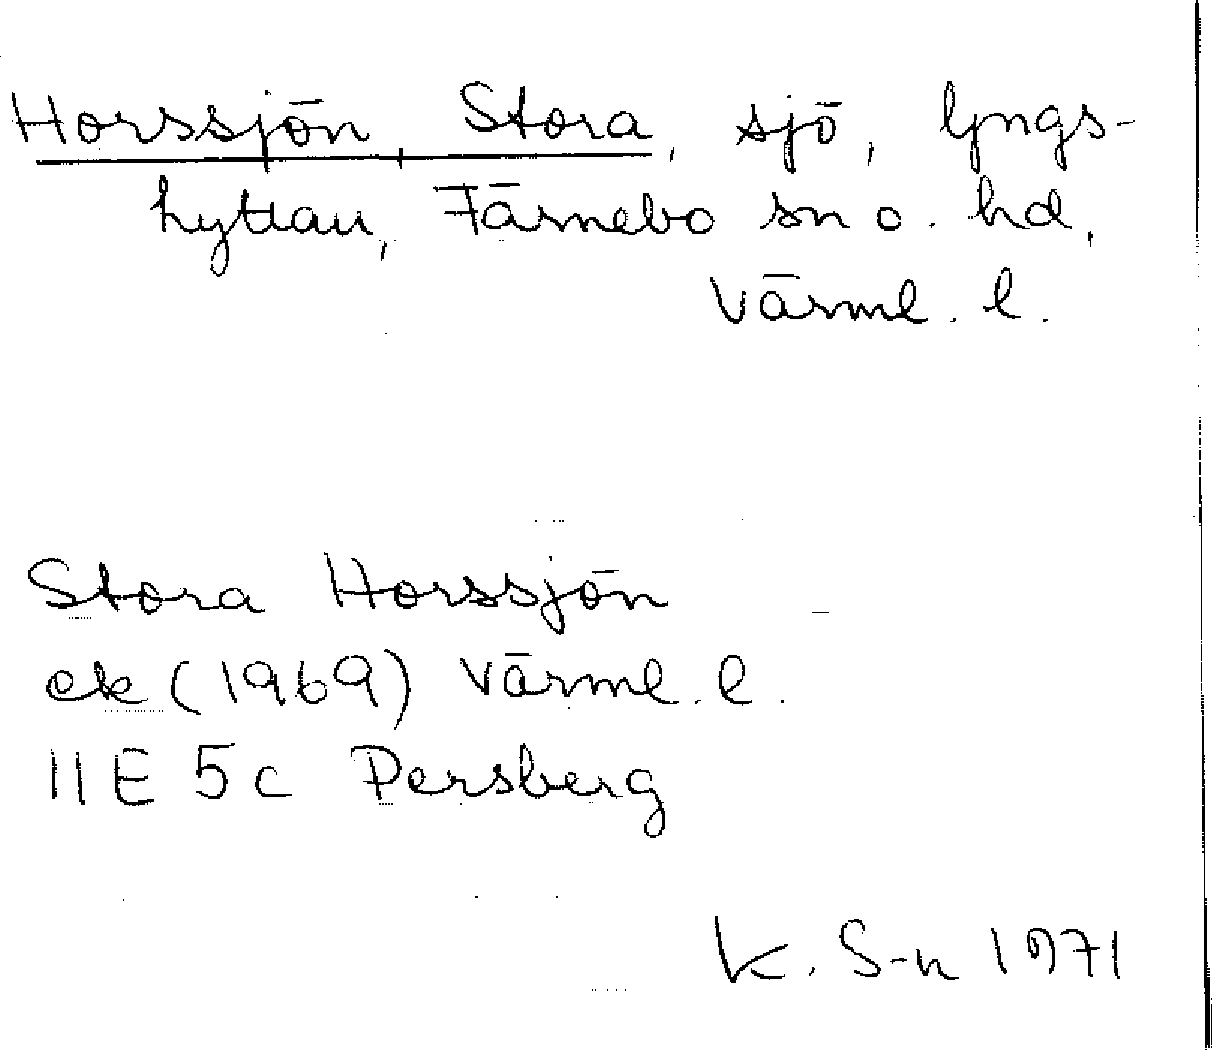 Horssjön Stora, sjö, lyngs-
hyttan, Färnebo sn o. hd,
Värml. l.
Stora Horssjön
ek (1969) Värml. l.
11E 5c Persberg
K. S-n 1971